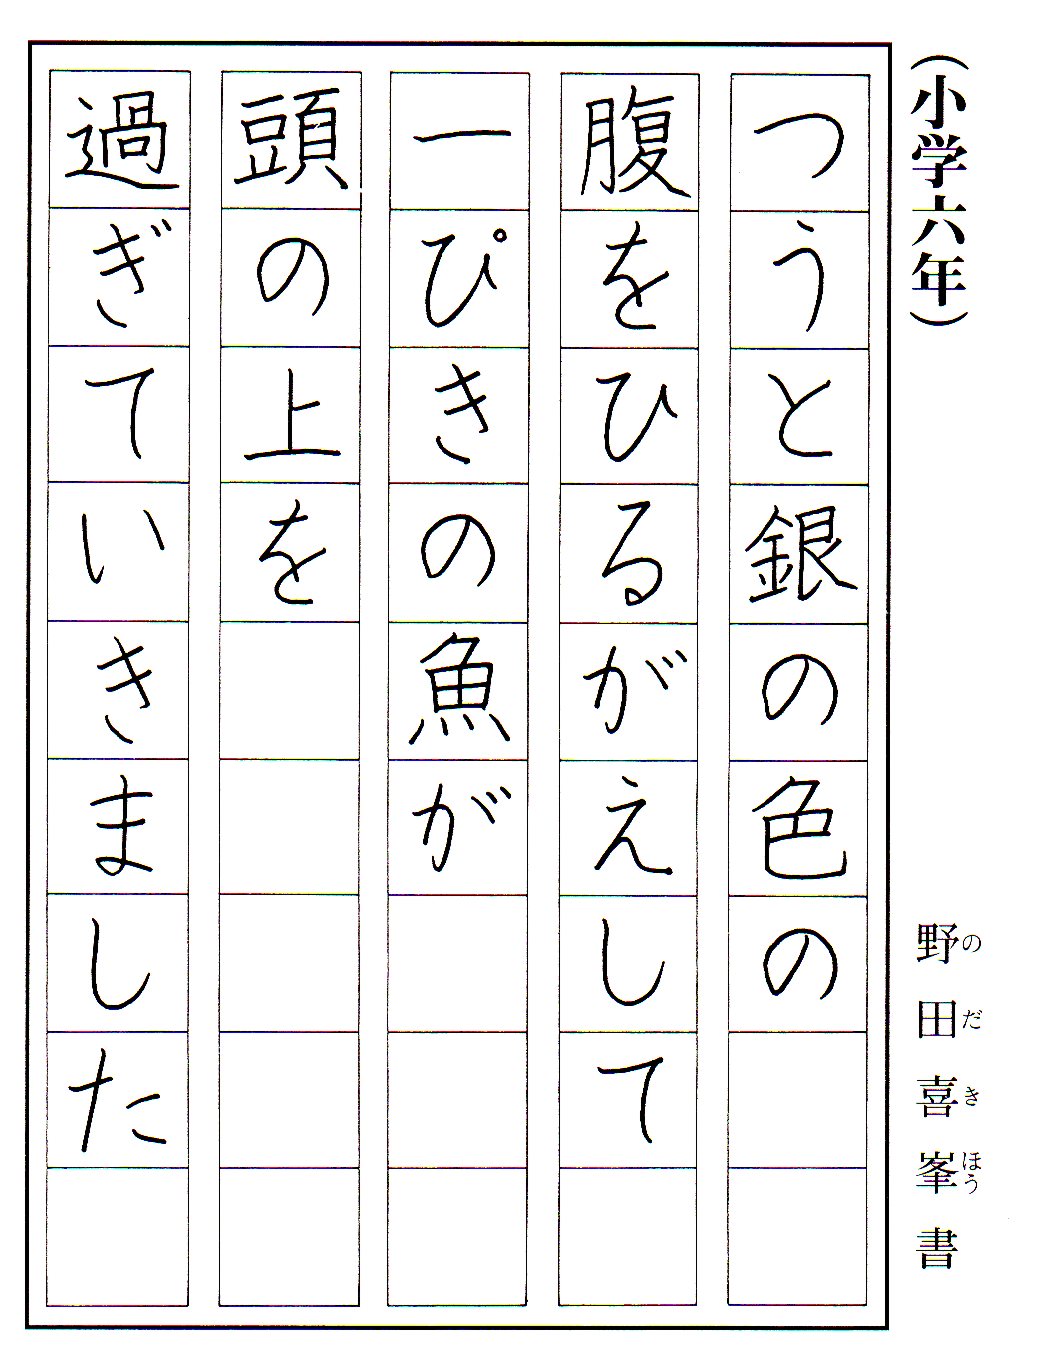 （小学六年）
野田喜峯書
のだきほう
つうと銀の色の
腹をひるがえして
一ぴきの魚が
頭の上を
過ぎていきました